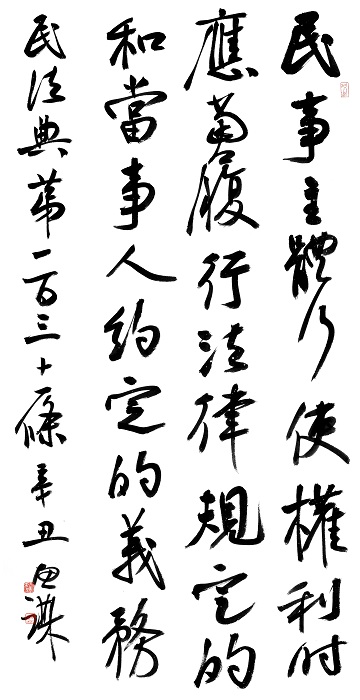 民事主體行使權利时
應當履行法律規定的
和當事人約定的義務
民法典第一百三十條辛丑謙